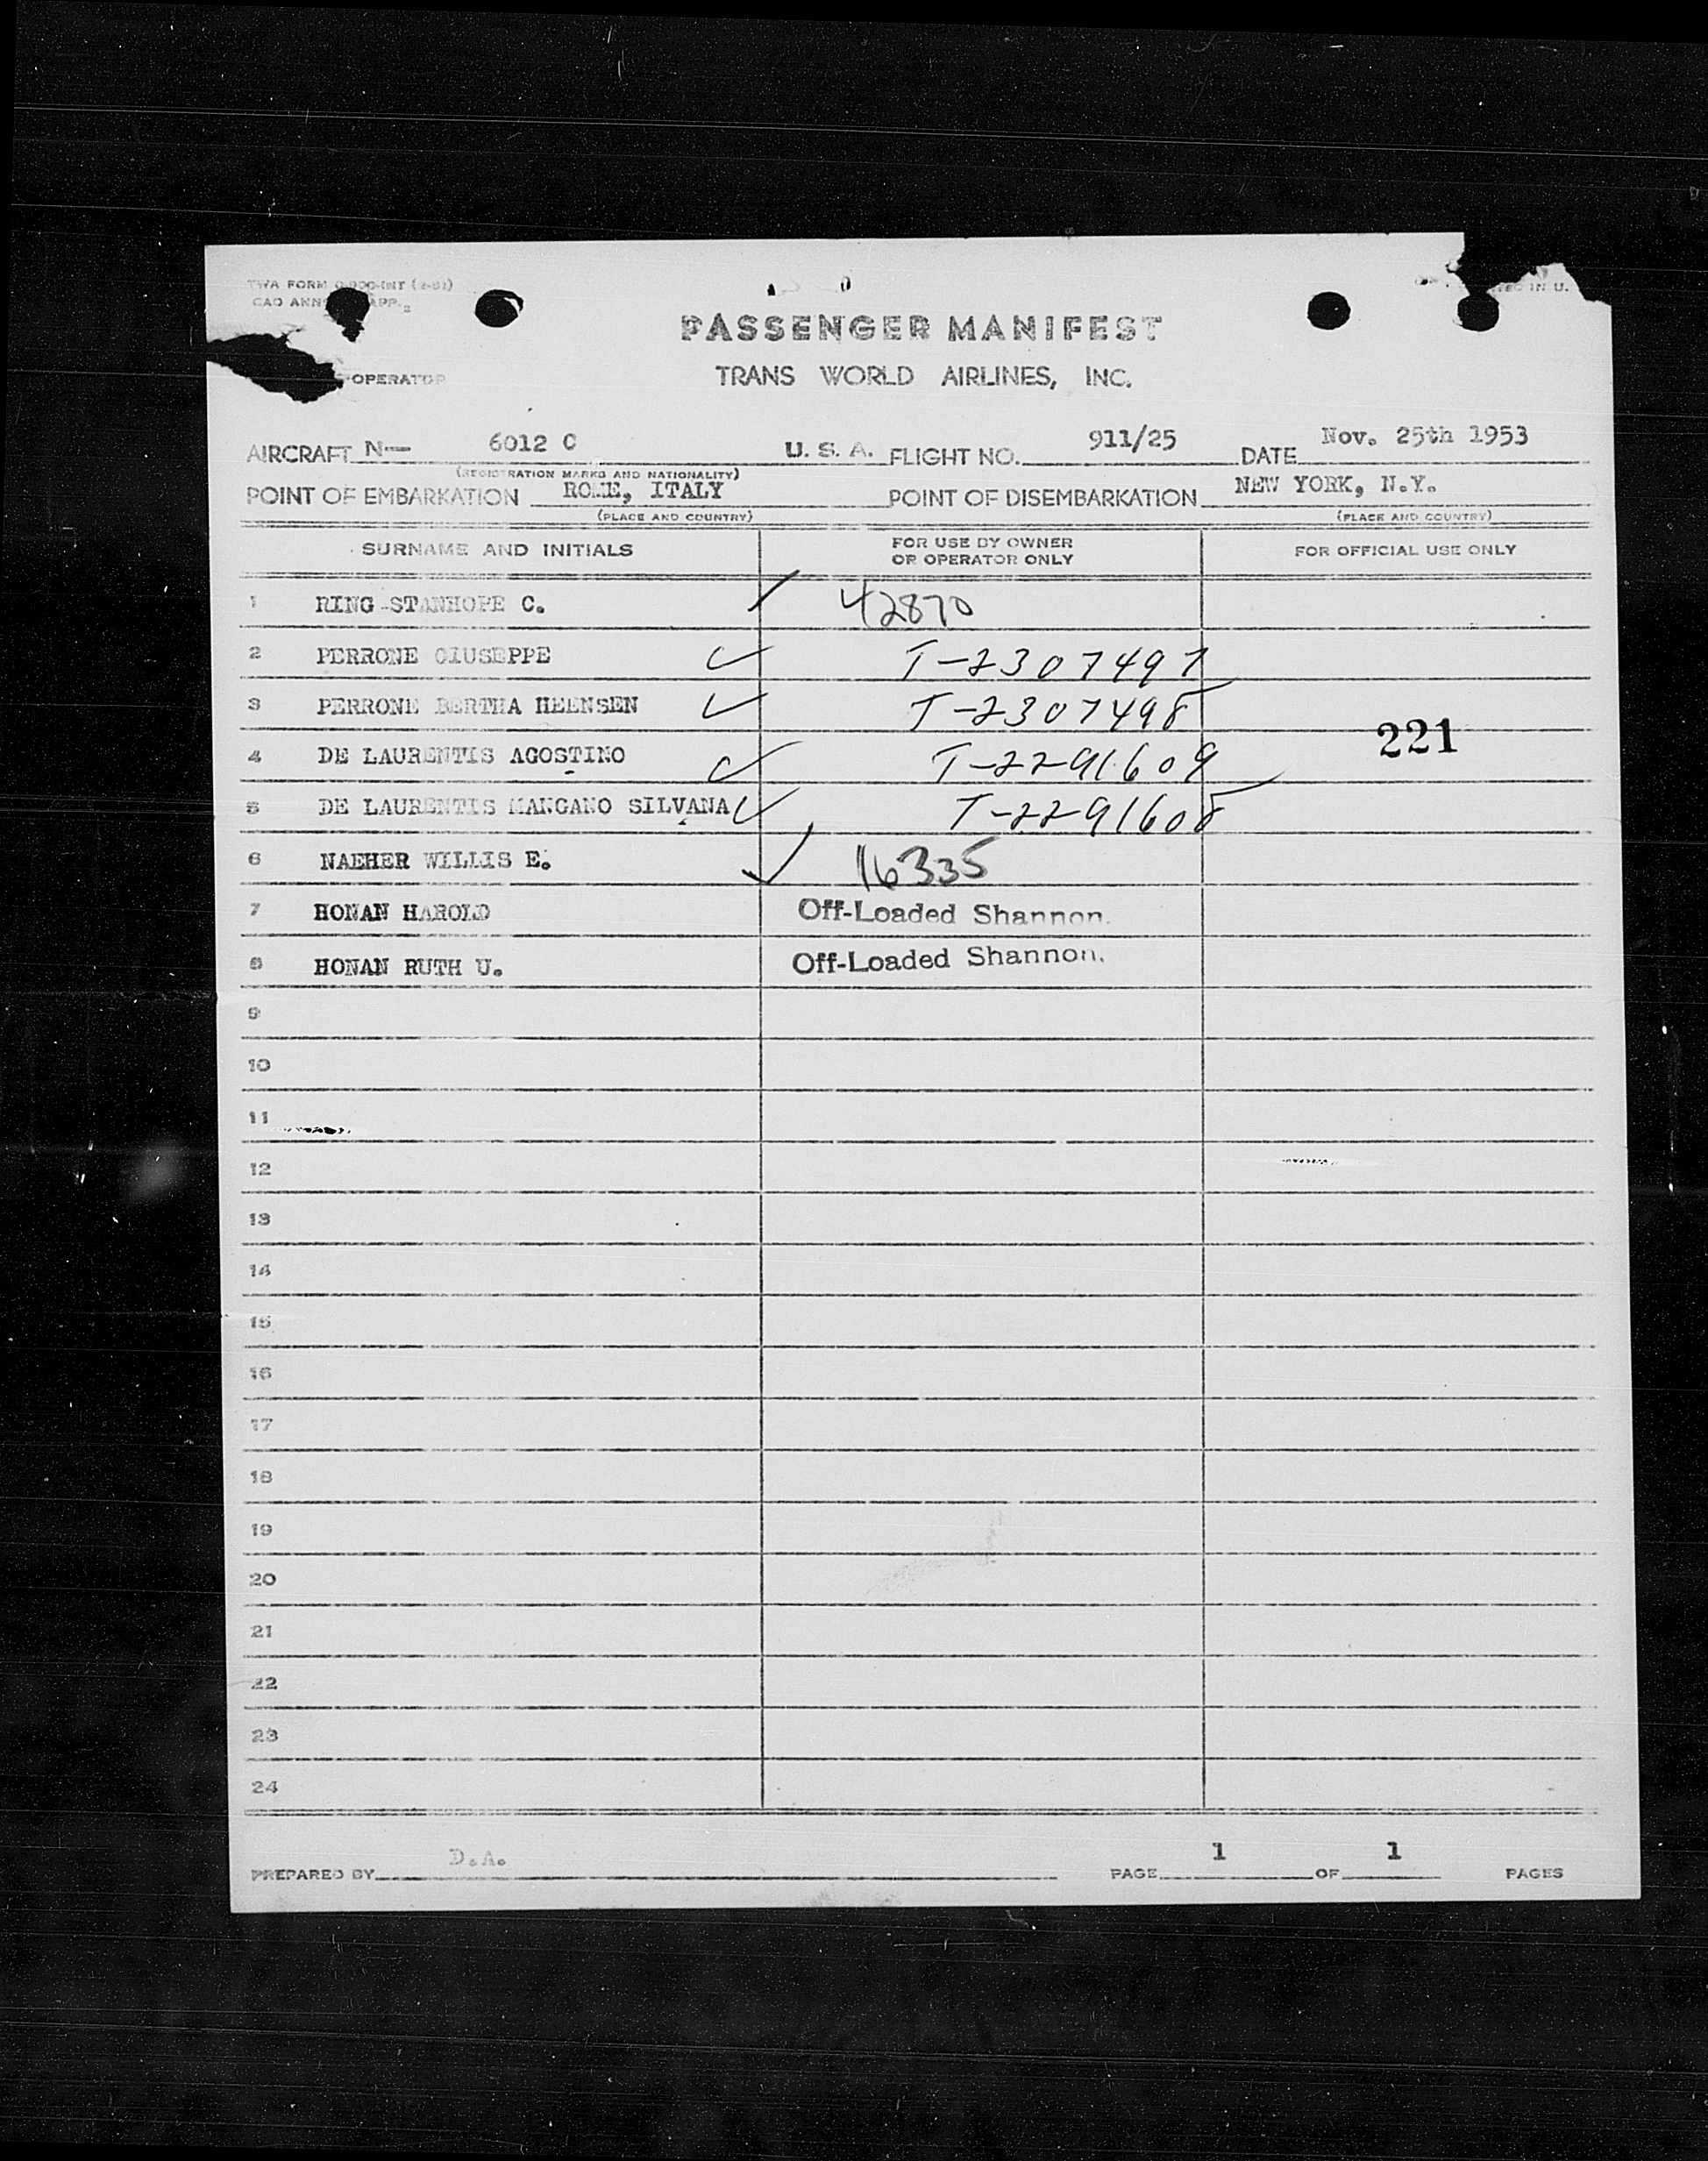 TWA FORM
CAO ANN APP.
OPERATOR
PASSENGER MANIFEST
TRANS WORLD AIRLINES, INC.
AIRCRAFT N— 6012 C U. S. A. FLIGHT NO. 911/25 DATE Nov. 25th 1953
(REGISTRATION MARKS AND NATIONALITY)
POINT OF EMBARKATION ROME, ITALY POINT OF DISEMBARKATION NEW YORK, N.Y.
(PLACE AND COUNTRY) (PLACE AND COUNTRY)
SURNAME AND INITIALS FOR USE BY OWNER OR OPERATOR ONLY FOR OFFICIAL USE ONLY
1 RING STANHOPE C. 42870
2 PERRONE GIUSEPPE T-2307497
3 PERRONE BERTHA HEENSEN T-2307498
221
4 DE LAURENTIS AGOSTINO T-2291609
5 DE LAURENTIS MANGANO SILVANA T-2291608
6 NAEHER WILLIS E. 16335
7 HONAN HAROLD Off-Loaded Shannon.
8 HONAN RUTH U. Off-Loaded Shannon.
9
10
11
12
13
14
15
16
17
18
19
20
21
22
23
24
PREPARED BY D.A. PAGE 1 OF 1 PAGES